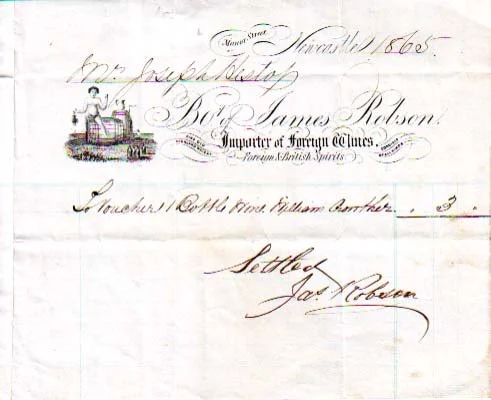 Manor Street,
Newcastle, 1865.
Mr. Joseph Heslop
Bot. of James Robson,
Importer of Foreign Wines,
Foreign & British Spirits
To Voucher 1 Bottle Wine William Crowther . 3 .
Settled
Jas. Robson